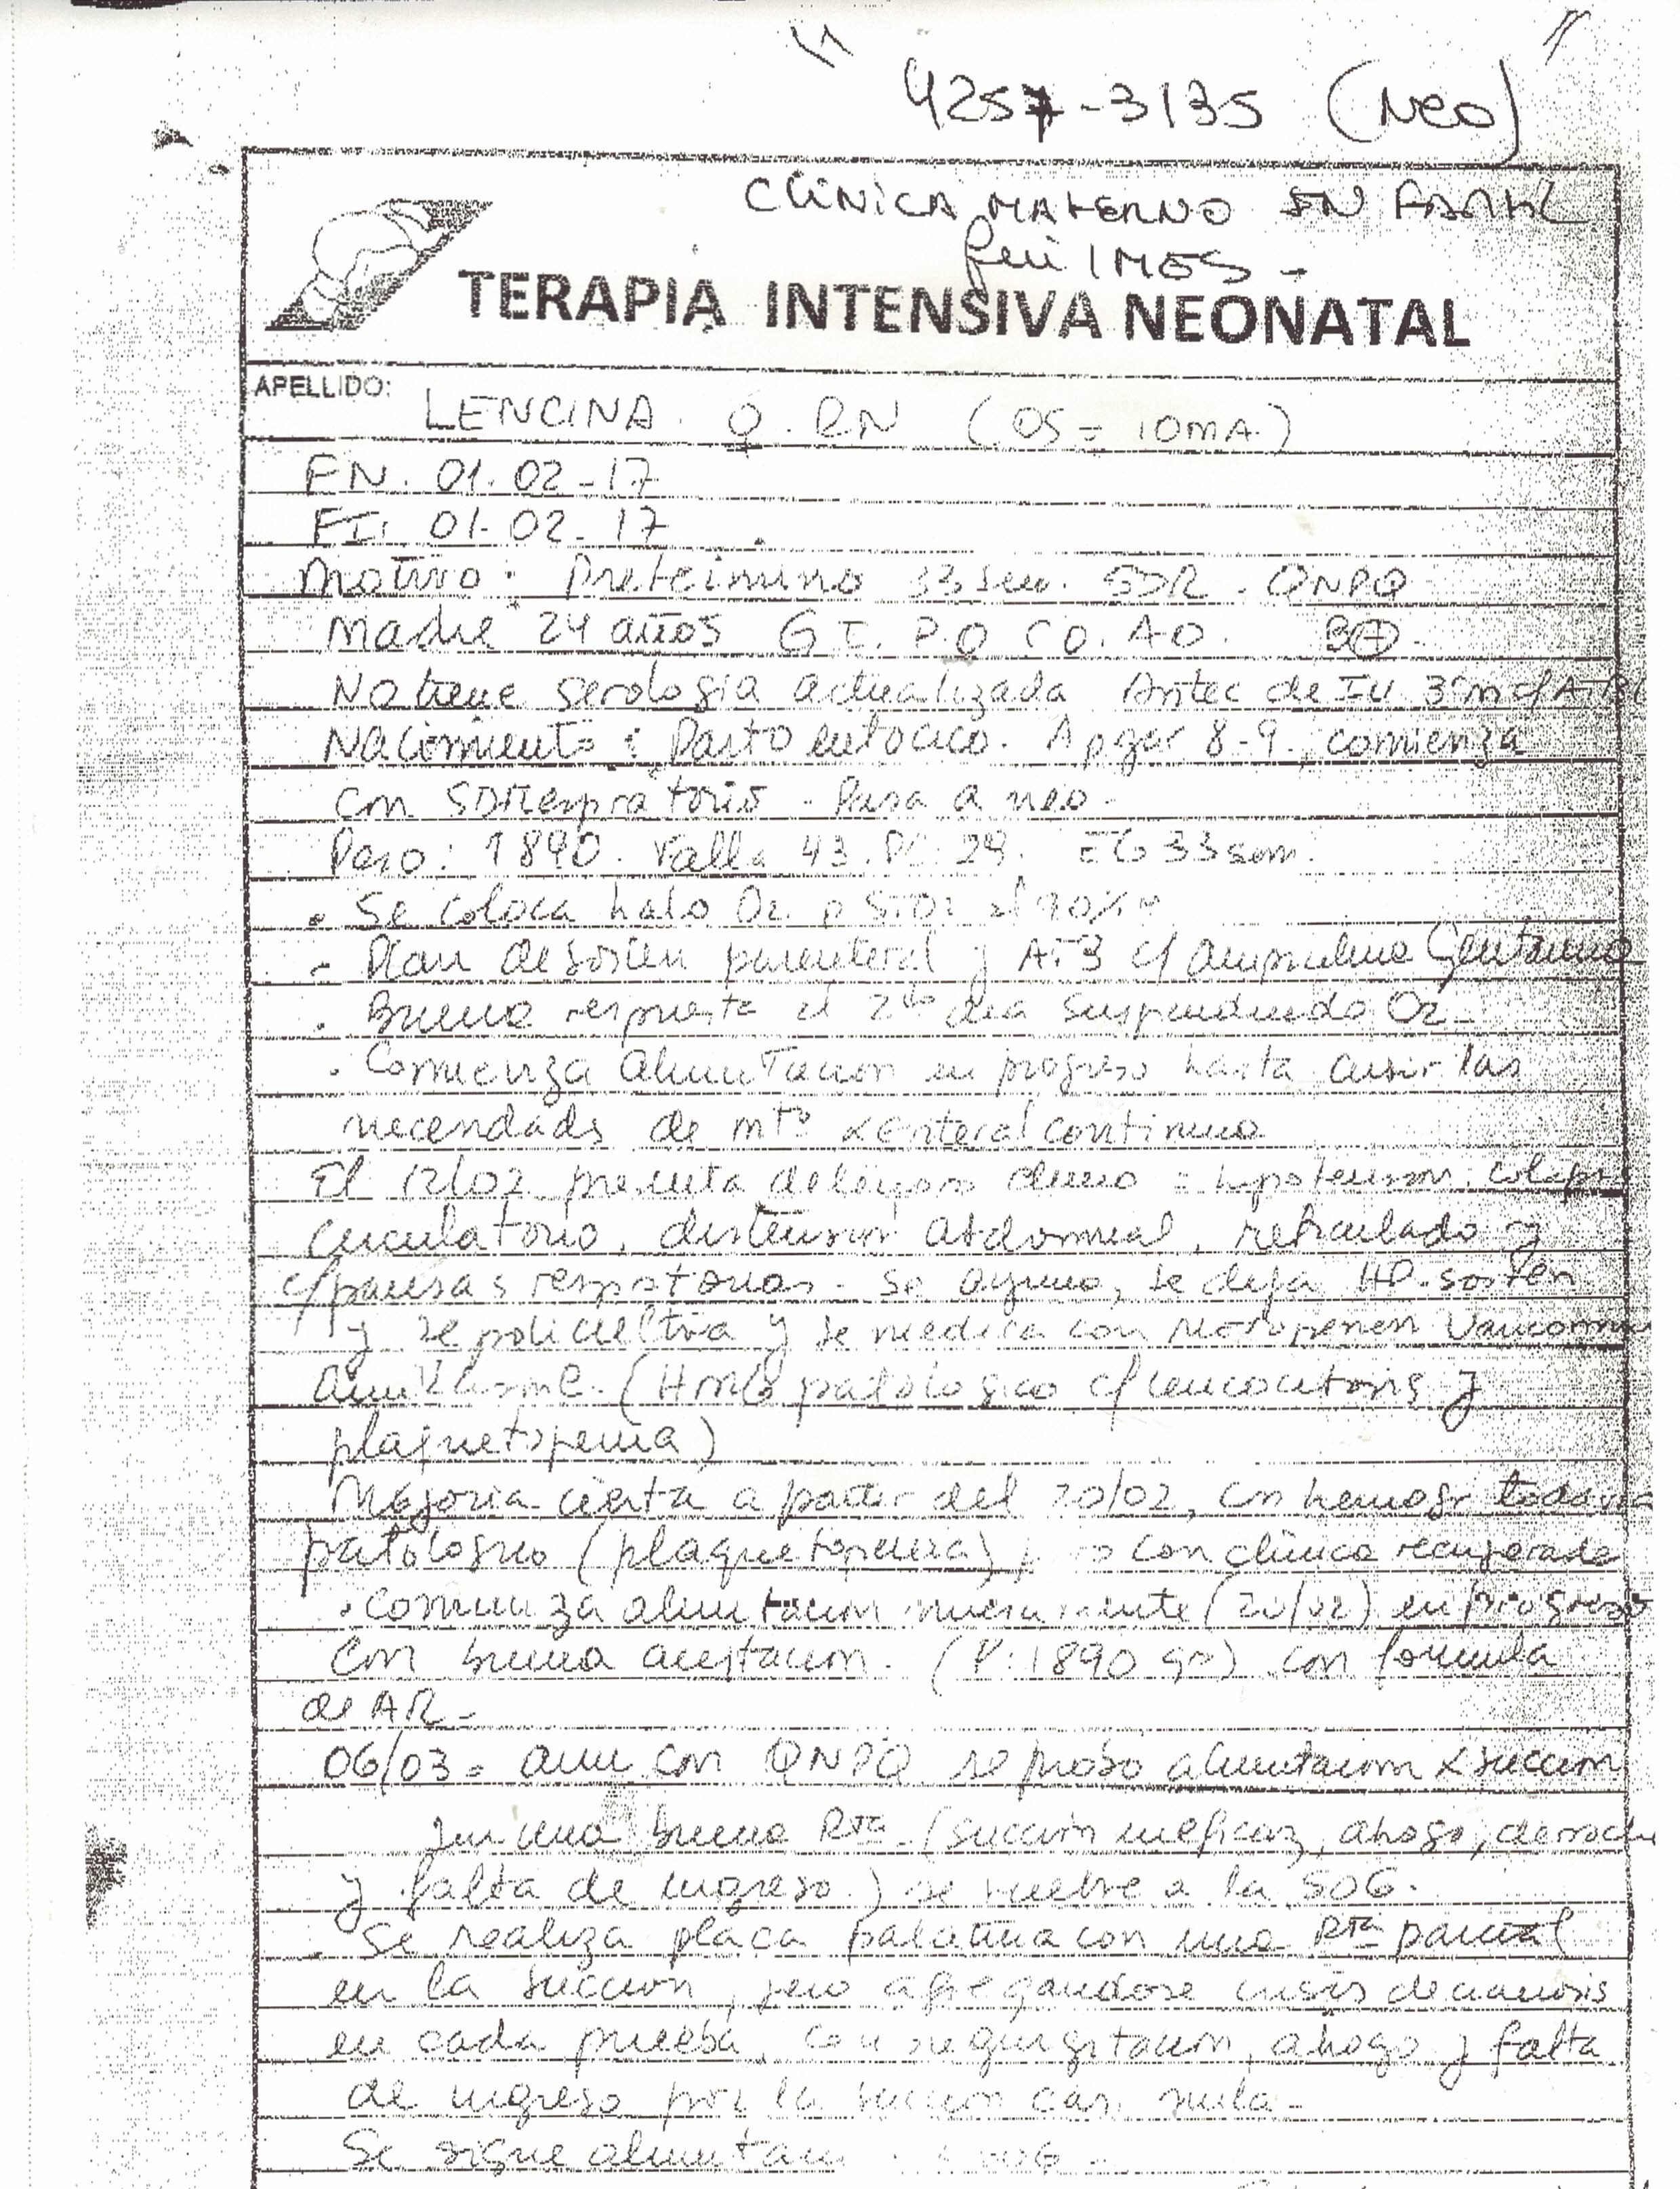 4257-3135 (Neo)
CLINICA MATERNO INFANTIL
IMOS -
TERAPIA INTENSIVA NEONATAL
APELLIDO: LENCINA ♀. RN (OS = IOMA.)
FN. 01.02-17
FI: 01-02-17
Motivo: Pretermino 33 sem. SDR.
Madre 24 años G I. P.O CO. AO. B⊕.
No tiene serologia actualizada Antec de IU 3ºm c/ATB
Nacimiento: Parto eutocico. Apgar 8-9, comienza
con SDRespiratorio - Pasa a neo.
Peso: 1890. Talla 43. PC 29. EG 33 sem.
. Se coloca halo O2
. Plan de sosten parenteral y ATB c/ ampicilina Gentamicina
. Buena respuesta al 2do dia suspendiendo O2
. Comienza alimentacion en progreso hasta cubrir las
necesidads de mto x enteral continua
El 12/02 presenta deterioro clinico = hipotension, colapso
circulatorio, distension abdominal, reticulado y
c/pausas respiratorias - Se ayuna, se deja HP. sosten
y se policultiva y se medica con Meropenen Vancomicina
(Hmg patologico c/leucocitosis y
plaquetopenia)
Mejoria cierta a partir del 20/02, con hemogr todavia
patologico (plaquetopenia), pero con clinica recuperada
. Comienza alimentacion nuevamente (20/02) en progreso
con buena aceptacion. (P: 1890 gr) con formula
de AR -
06/03 = aun con se probo alimentacion x succion
sin una buena Rta (succion ineficaz, ahogo, derrame
y falta de ingreso) se vuelve a la SOG.
. Se realiza placa palatina con una Rta parcial
en la succion, pero agregandose crisis de cianosis
en cada prueba, con regurgitacion, ahogo y falta
de ingreso por la succion casi nula -
Se sigue SOG -